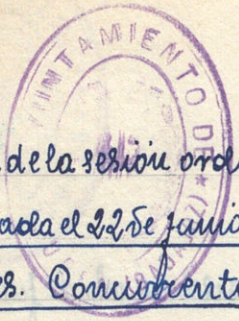 AYUNTAMIENTO DE
de la sesión ord
ada el 22 de junio
s. Concurrente